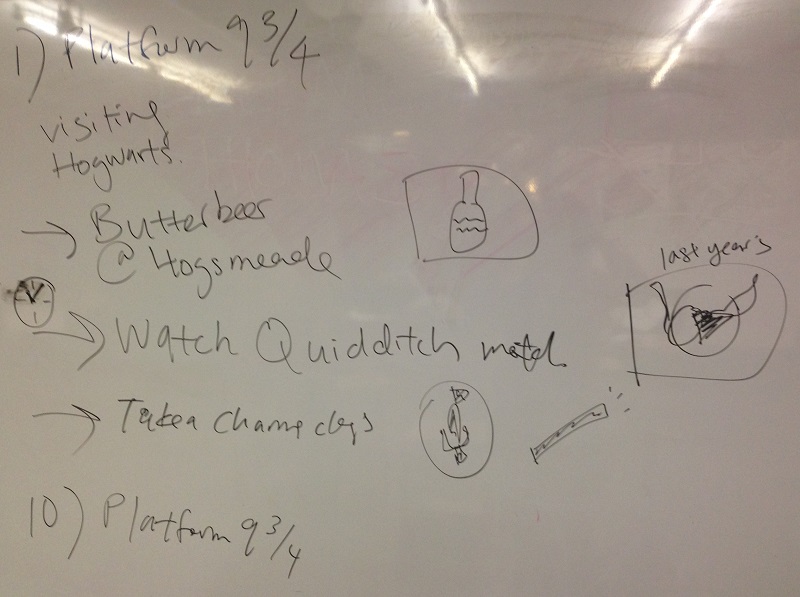 1) Platform 9 3/4
visiting
Hogwarts.
→ Butterbeer
@ Hogsmeade
last year's
→ Watch Quidditch match
→ Take a charm class
10) Platform 9 3/4